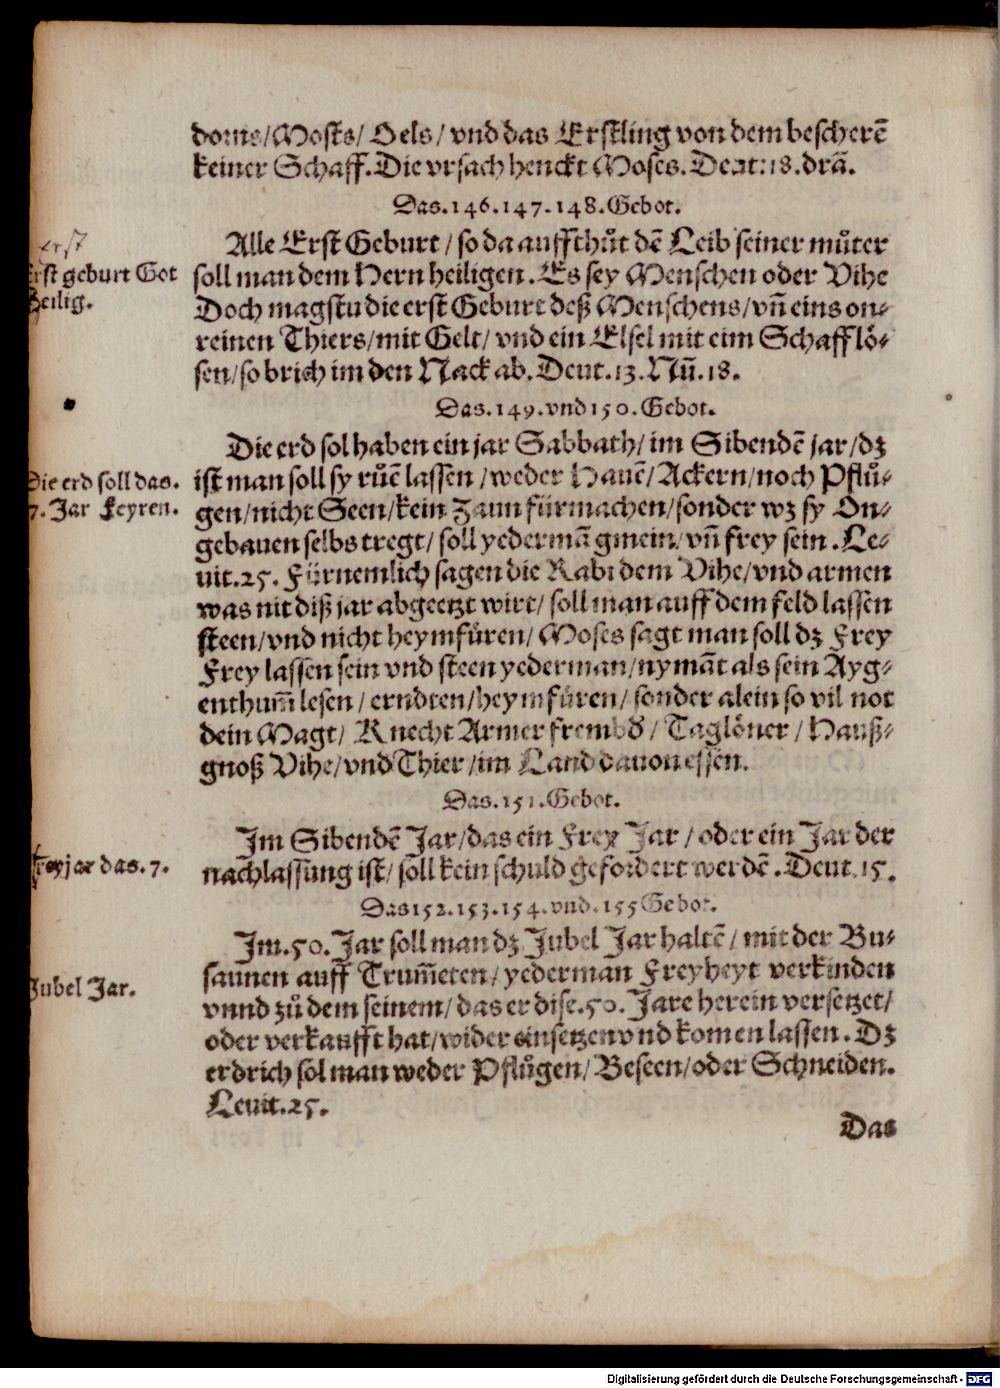 doms/Mosts/ Oels/ vnd das Erstling von dem bescherē
keiner Schaff. Die vrsach henckt Moses. Deut: 18. drā.
Das. 146. 147. 148. Gebot.
erst
Erst geburt Got
heilig.
Alle Erst Geburt/ so da auffthůt dē Leib seiner můter
soll man dem Hern heiligen. Es sey Menschen oder Vihe
Doch magstu die erst Geburt deß Menschens/ vñ eins on⸗
reinen Thiers/ mit Gelt/ vnd ein Elsel mit eim Schaff lö⸗
sen/ so brich im den Nack ab. Deut. 13. Nū. 18.
Das. 149. vnd 150. Gebot.
Die erd soll das.
7. Jar Feyren.
Die erd sol haben ein jar Sabbath/ im Sibendē jar/ dz
ist man soll sy růē lassen/ weder Hauē/ Ackern/ noch Pflů⸗
gen/ nicht Seen/ kein Zaun fürmachen/ sonder wz sy On⸗
gebauen selbs tregt/ soll yedermā gmein/ vñ frey sein. Le⸗
uit. 25. Fürnemlich sagen die Rabi dem Vihe/ vnd armen
was nit diß jar abgeetzt wirt/ soll man auff dem feld lassen
steen/ vnd nicht heymfüren/ Moses sagt man soll dz Frey
Frey lassen sein vnd steen yederman/ nymāt als sein Ayg⸗
enthum̄ lesen/ erndten/ heymfüren/ sonder alein so vil not
dein Magt/ Knecht Armer frembd/ Taglöner/ Hauß⸗
gnoß Vihe/ vnd Thier/ im Land dauon essen.
Das. 151. Gebot.
Freyjar das. 7.
Im Sibendē Jar/ das ein Frey Jar/ oder ein Jar der
nachlassung ist/ soll kein schuld gefordert werdē. Deut. 15.
Das 152. 153. 154. vnd. 155 Gebot.
Jubel Jar.
Im. 50. Jar soll man dz Jubel Jar haltē/ mit der Bu⸗
saunen auff Trum̄eten/ yederman Freyheyt verkinden
vnnd zů dem seinem/ das er dise. 50. Jare herein versetzet/
oder verkaufft hat/ wider einsetzen vnd komen lassen. Dz
erdrich sol man weder Pflůgen/ Beseen/ oder Schneiden.
Leuit. 25.
Das
Digitalisierung gefördert durch die Deutsche Forschungsgemeinschaft - DFG